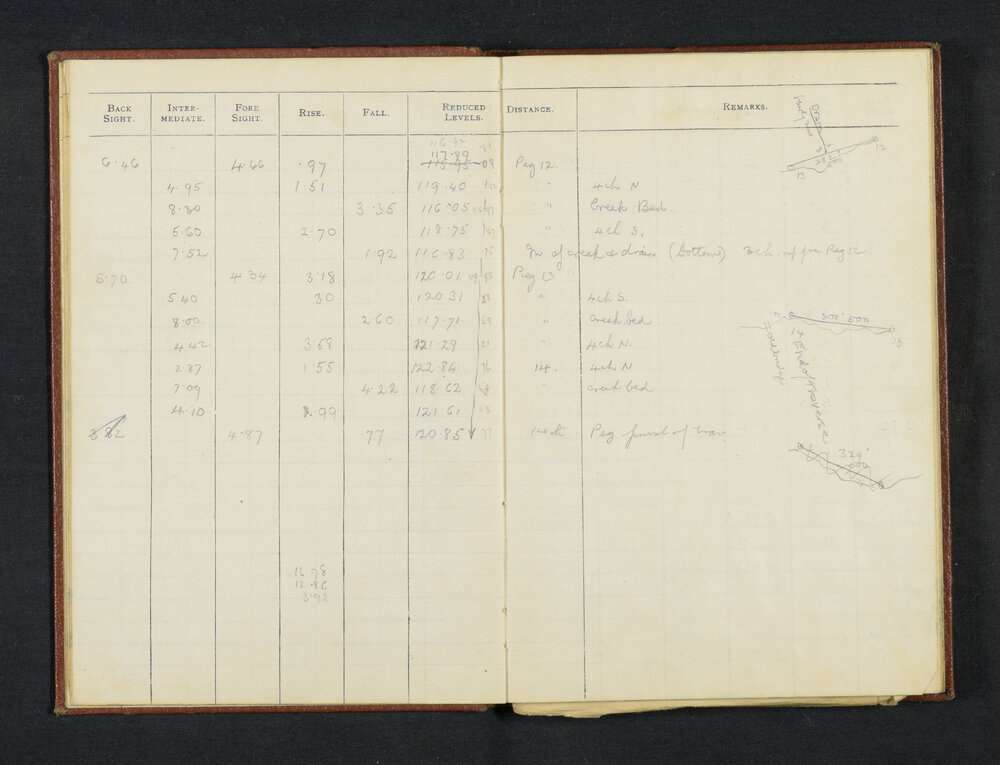 BACK SIGHT. INTER-MEDIATE. FORE SIGHT. RISE. FALL. REDUCED LEVELS. DISTANCE. REMARKS.
116.92
117.89
6.46 4.66 .97 115.95 .08 Peg 12.
4.95 1.51 119.40 " 4ch N
8.30 3.35 116.05 " Creek Bed.
5.60 2.70 118.75 " 4ch S.
7.52 1.92 116.83 of creek & drain (bottom) 3ch. up fm Peg 12
5.70 4.34 3.18 120.01 Peg 13
5.40 30 120.31 " 4ch S.
8.00 2.60 117.71 63 " Creek bed
4.42 3.68 121.29 21 " 4ch N.
2.87 1.55 122.84 76 14. 4ch N
7.09 4.22 118.62 " creek bed
4.10 2.99 121.61 53
3.82 4.87 .77 120.85 77 Peg finish of trav
16.78
12.86
3.92
Drain
12
13
308.500
13
14 End of traverse
329.
500